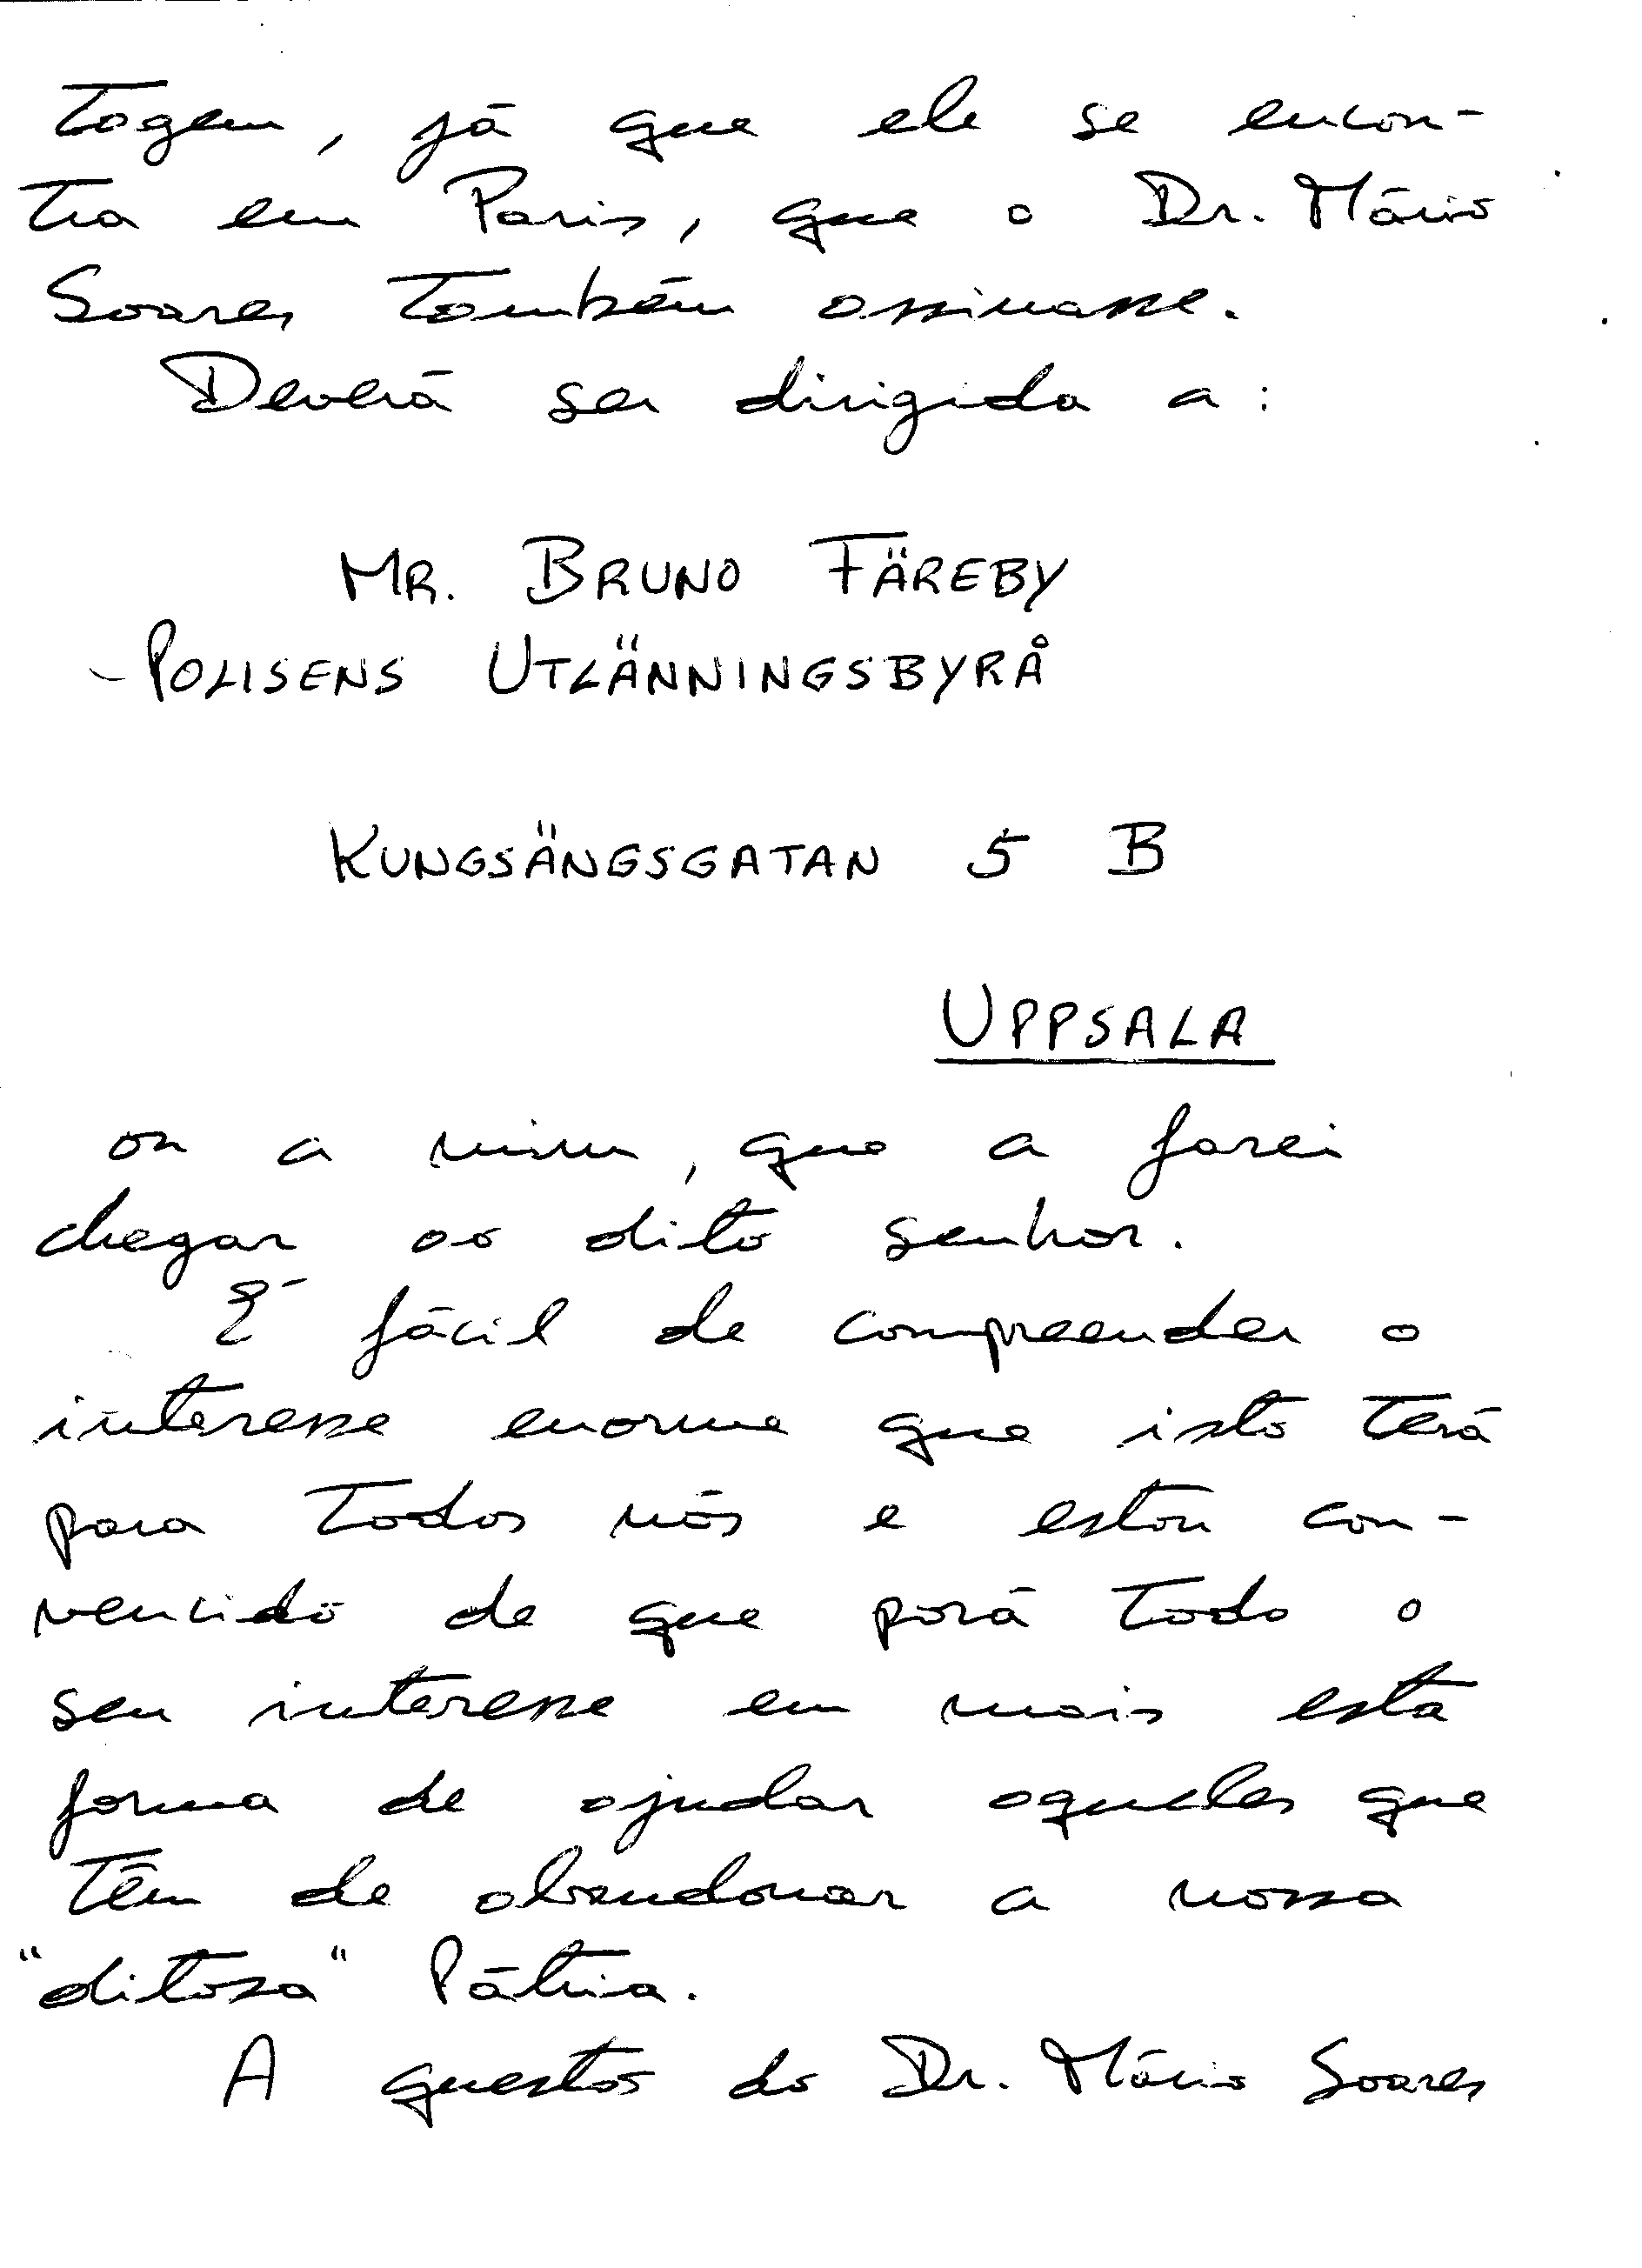 tagem, já que ele se encon-
tra em Paris, que o Dr. Mário
Soares também assinasse.
Deverá ser dirigida a:
MR. BRUNO FÄREBY
- POLISENS UTLÄNNINGSBYRÅ
KUNGSÄNGSGATAN 5 B
UPPSALA
ou a mim, que a farei
chegar ao dito senhor.
É fácil de compreender o
interesse enorme que isto terá
para todos nós e estou con-
vencido de que porá todo o
seu interesse em mais esta
forma de ajudar aqueles que
têm de abandonar a nossa
"ditosa" Pátria.
A questão do Dr. Mário Soares